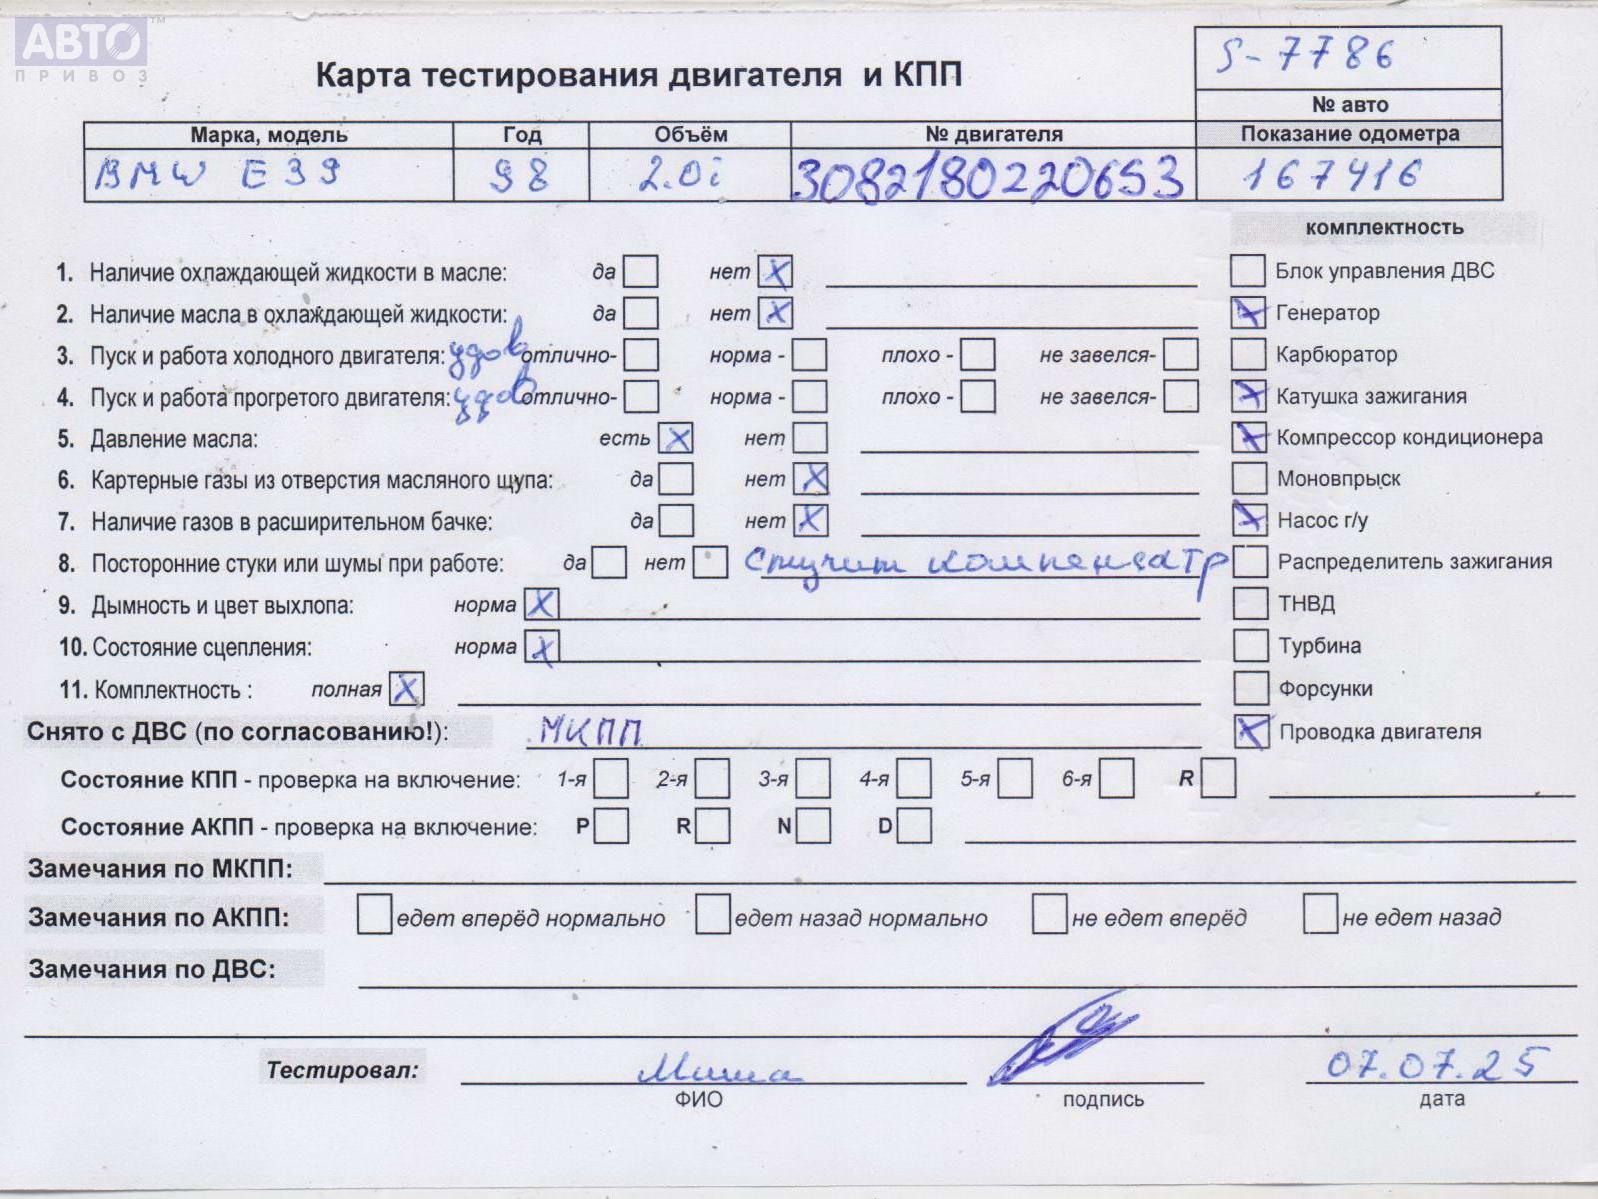 АВТО™
ПРИВОЗ
Карта тестирования двигателя и КПП
S-7786
№ авто
Марка, модель Год Объём № двигателя Показание одометра
BMW E39 98 2.0i 3082180220653 167416
комплектность
1. Наличие охлаждающей жидкости в масле: да нет X
Блок управления ДВС
2. Наличие масла в охлаждающей жидкости: да нет X
X Генератор
3. Пуск и работа холодного двигателя: удов отлично- норма - плохо - не завелся-
Карбюратор
4. Пуск и работа прогретого двигателя: удов отлично- норма - плохо - не завелся-
X Катушка зажигания
5. Давление масла: есть X нет
X Компрессор кондиционера
6. Картерные газы из отверстия масляного щупа: да нет X
Моновпрыск
7. Наличие газов в расширительном бачке: да нет X
X Насос г/у
8. Посторонние стуки или шумы при работе: да нет Стучит компенсатр
Распределитель зажигания
9. Дымность и цвет выхлопа: норма X
ТНВД
10. Состояние сцепления: норма X
Турбина
11. Комплектность : полная X
Форсунки
Снято с ДВС (по согласованию!): МКПП
X Проводка двигателя
Состояние КПП - проверка на включение: 1-я 2-я 3-я 4-я 5-я 6-я R
Состояние АКПП - проверка на включение: P R N D
Замечания по МКПП:
Замечания по АКПП: едет вперёд нормально едет назад нормально не едет вперёд не едет назад
Замечания по ДВС:
Тестировал: Миша 07.07.25
ФИО подпись дата